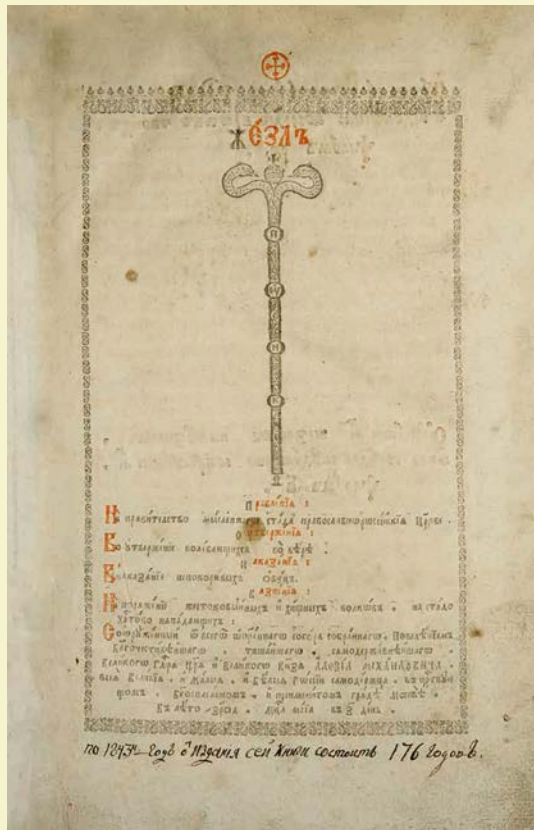 Жезлъ
П
У
Н
К
Правленїѧ :
На правительство мысленнагѡ стада православнороссїйскїѧ Цр҃кве .
Оутвержденїѧ :
Во оутверженїе колеблющихсѧ во вѣрѣ .
Наказанїѧ :
В наказанїе непокоривыхъ ѻвецъ .
Казненїѧ :
На пораженїе жестоковыйныхъ и хищныхъ волкѡвъ , на стадо
Хрⷭ҇тово нападающихъ .
Сооруженный ѿ всегѡ ѡсщ҃еннагѡ собора собраннагѡ , Повелѣнїемъ
Бл҃гочестивѣйшагѡ , тишайшагѡ , самодержавнѣйшагѡ ,
Великагѡ Гдⷭ҇рѧ Цр҃ѧ и Великагѡ Кн҃зѧ АЛЕѮЇА МИХАИЛОВИЧА ,
всеѧ Великїѧ , и Малыѧ , и Бѣлыѧ Рѡссїи самодержца , въ царствую
щемъ , Бг҃оспасаемомъ , и преименитомъ градѣ Москвѣ ,
Въ лѣто , мцⷭ҇а їꙋлїа въ день .
по 1843й Годъ ѿ Издания сей Книги состоитъ 176 Годовъ.